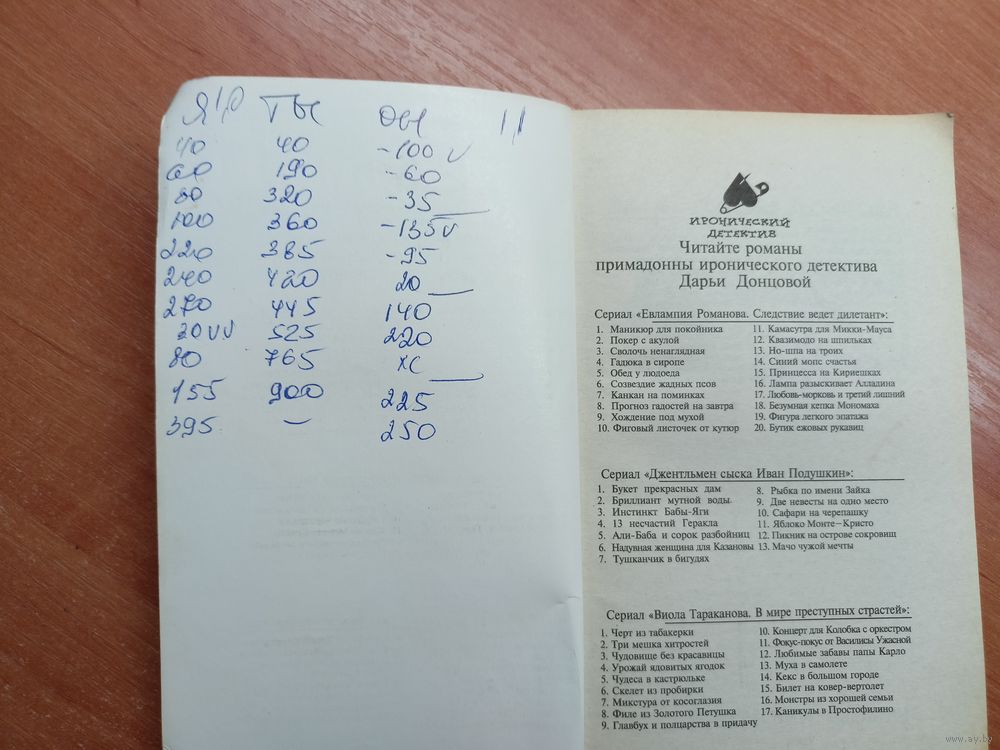 Я ТЫ ОН
40 40 -100 V
60 190 -60
80 320 -35
100 360 -135 V
220 385 -95
240 420 20
270 445 140
20 VV 525 220
80 765 хс
155 900 225
395 – 250
ИРОНИЧЕСКИЙ
ДЕТЕКТИВ
Читайте романы
примадонны иронического детектива
Дарьи Донцовой
Сериал «Евлампия Романова. Следствие ведет дилетант»:
1. Маникюр для покойника
2. Покер с акулой
3. Сволочь ненаглядная
4. Гадюка в сиропе
5. Обед у людоеда
6. Созвездие жадных псов
7. Канкан на поминках
8. Прогноз гадостей на завтра
9. Хождение под мухой
10. Фиговый листочек от кутюр
11. Камасутра для Микки-Мауса
12. Квазимодо на шпильках
13. Но-шпа на троих
14. Синий мопс счастья
15. Принцесса на Кириешках
16. Лампа разыскивает Алладина
17. Любовь-морковь и третий лишний
18. Безумная кепка Мономаха
19. Фигура легкого эпатажа
20. Бутик ежовых рукавиц
Сериал «Джентльмен сыска Иван Подушкин»:
1. Букет прекрасных дам
2. Бриллиант мутной воды
3. Инстинкт Бабы-Яги
4. 13 несчастий Геракла
5. Али-Баба и сорок разбойниц
6. Надувная женщина для Казановы
7. Тушканчик в бигудях
8. Рыбка по имени Зайка
9. Две невесты на одно место
10. Сафари на черепашку
11. Яблоко Монте-Кристо
12. Пикник на острове сокровищ
13. Мачо чужой мечты
Сериал «Виола Тараканова. В мире преступных страстей»:
1. Черт из табакерки
2. Три мешка хитростей
3. Чудовище без красавицы
4. Урожай ядовитых ягодок
5. Чудеса в кастрюльке
6. Скелет из пробирки
7. Микстура от косоглазия
8. Филе из Золотого Петушка
9. Главбух и полцарства в придачу
10. Концерт для Колобка с оркестром
11. Фокус-покус от Василисы Ужасной
12. Любимые забавы папы Карло
13. Муха в самолете
14. Кекс в большом городе
15. Билет на ковер-вертолет
16. Монстры из хорошей семьи
17. Каникулы в Простофилино
www.ay.by